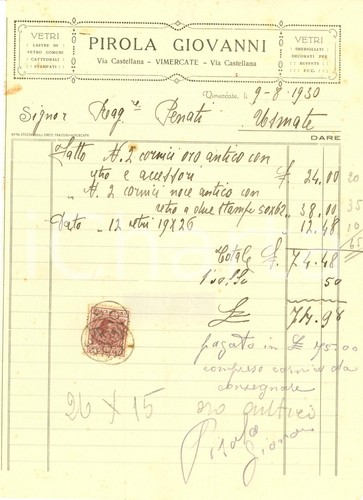 VETRI
LASTRE DI
VETRO COMUNI
CATTEDRALI
STAMPATI
PIROLA GIOVANNI
Via Castellana - VIMERCATE - Via Castellana
VETRI
SMERIGLIATI
DECORATI PER
BUFFETS
ECC.
Vimercate, li 9-8-1930
Signor Rag. Penati Usmate
DARE
Fatto N. 2 cornici oro antico con
vetro e acessori £ 24.00 20
" N. 2 cornici noce antico con
vetro a due stampe 50x62 38.00 35
Dato " 12 vetri 19x26 12.48 10
65
Totale £. 74.48
bollo 50
£ 74.98
pagato in £ 45.00
compreso cornici da
consegnate
26 x 15 oro antico
Pirola
Giovanni